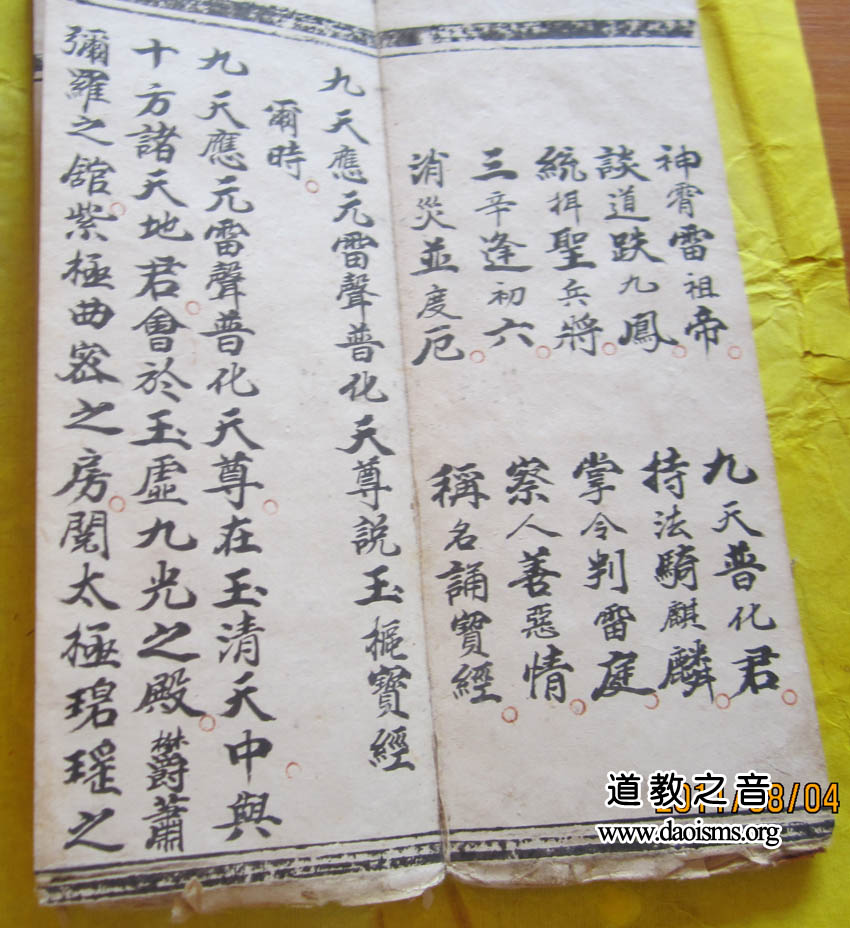 神霄雷祖帝
九天普化君
談道趺九鳳
持法騎麒麟
統揖聖兵將
掌令判雷庭
三辛逢初六
察人善惡情
消災並度厄
稱名誦寶經
九天應元雷聲普化天尊説玉樞寶經
爾時
九天應元雷聲普化天尊在玉清天中與
十方諸天地君會於玉虛九光之殿欝蕭
彌羅之舘紫極曲宻之房閱太極琅瑤之
道教之音
2011/08/04
www.daoisms.org